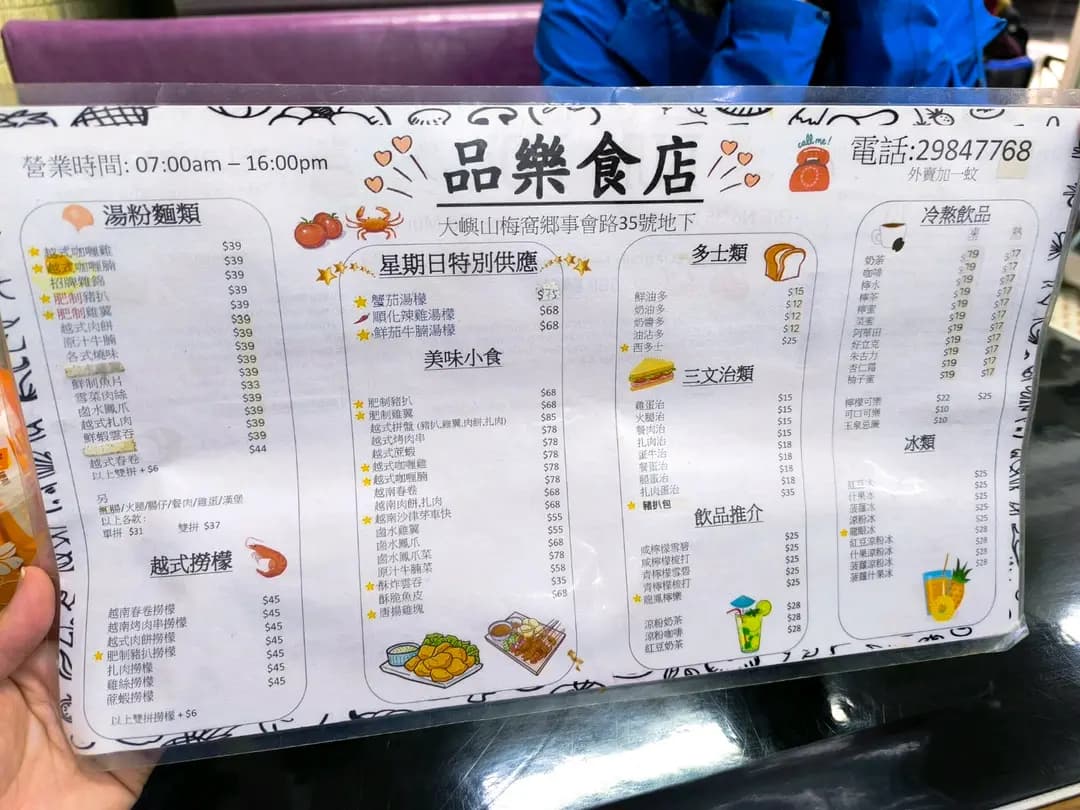 營業時間: 07:00am – 16:00pm
品樂食店
call me!
電話:29847768
外賣加一蚊
大嶼山梅窩鄉事會路35號地下
湯粉麵類
越式咖喱雞 $39
越式咖喱腩 $39
招牌雜錦 $39
肥制豬扒 $39
肥制雞翼 $39
越式肉餅 $39
原汁牛腩 $39
各式燒味 $39
鮮制魚片
雪菜肉絲
鹵水鳳爪
越式扎肉
鮮蝦雲吞
越式春卷
以上雙拼 + $6
$39
$33
$39
$39
$39
$44
另
氣腸/火腿/腸仔/餐肉/雞蛋/漢堡
以上各款:
單拼 $31 雙拼 $37
越式撈檬
越南春卷撈檬 $45
越南烤肉串撈檬 $45
越式肉餅撈檬 $45
肥制豬扒撈檬 $45
扎肉撈檬 $45
雞絲撈檬 $45
蔗蝦撈檬 $45
以上雙拼撈檬 + $6
星期日特別供應
蟹茄湯檬 $75
順化辣雞湯檬 $68
鮮茄牛腩湯檬 $68
美味小食
肥制豬扒 $68
肥制雞翼 $68
越式拼盤 (豬扒,雞翼,肉餅,扎肉) $85
越式烤肉串 $78
越式蔗蝦 $78
越式咖喱雞 $78
越式咖喱腩 $78
越南春卷 $78
越南肉餅,扎肉 $68
越南沙津芽車快 $68
鹵水雞翼 $55
鹵水鳳爪 $55
鹵水鳳爪菜 $68
原汁牛腩菜 $78
酥炸雲吞 $58
酥脆魚皮 $35
唐揚雞塊 $68
多士類
鮮油多 $15
奶油多 $12
奶醬多 $12
油沾多 $12
西多士 $25
三文治類
雞蛋治 $15
火腿治 $15
餐肉治 $15
扎肉治 $15
蛋牛治 $18
餐蛋治 $18
腿蛋治 $18
扎肉蛋治 $18
豬扒包 $35
飲品推介
咸檸檬雪碧 $25
咸檸檬梳打 $25
青檸檬雪碧 $25
青檸檬梳打 $25
龍鳳檸樂 $25
涼粉奶茶 $28
涼粉咖啡 $28
紅豆奶茶 $28
冷熱飲品
凍 熱
奶茶 $19 $17
咖啡 $19 $17
檸水 $19 $17
檸茶 $19 $17
檸蜜 $19 $17
菜蜜 $19 $17
阿華田 $19 $17
好立克 $19 $17
朱古力 $19 $17
杏仁霜 $19 $17
柚子蜜 $19 $17
檸檬可樂 $22 $25
可口可樂 $10
玉泉忌廉 $10
冰類
紅豆冰 $25
什果冰 $25
菠蘿冰 $25
涼粉冰 $25
龍眼冰 $25
紅豆涼粉冰 $28
什果涼粉冰 $28
菠蘿涼粉冰 $28
菠蘿什果冰 $28